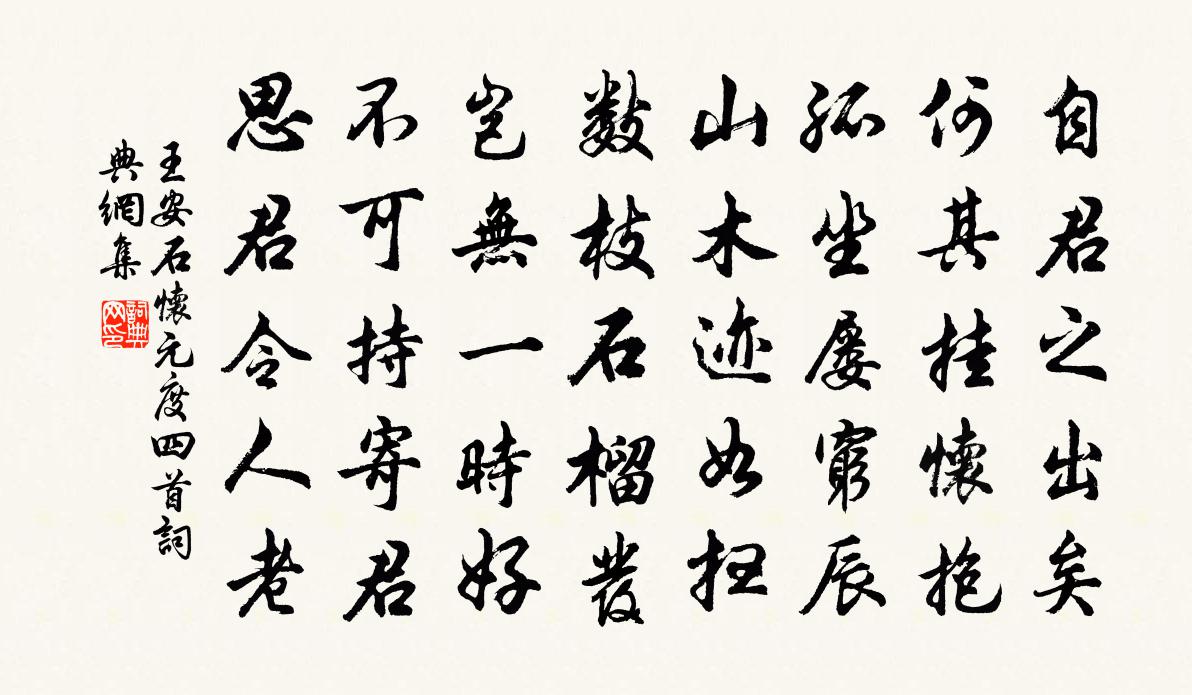 自君之出矣
何其挂懷抱
孤坐屡窮辰
山木迹如扫
數枝石榴發
豈無一時好
不可持寄君
思君令人老
王安石懷元度四首詞
典網集
詞典
网印